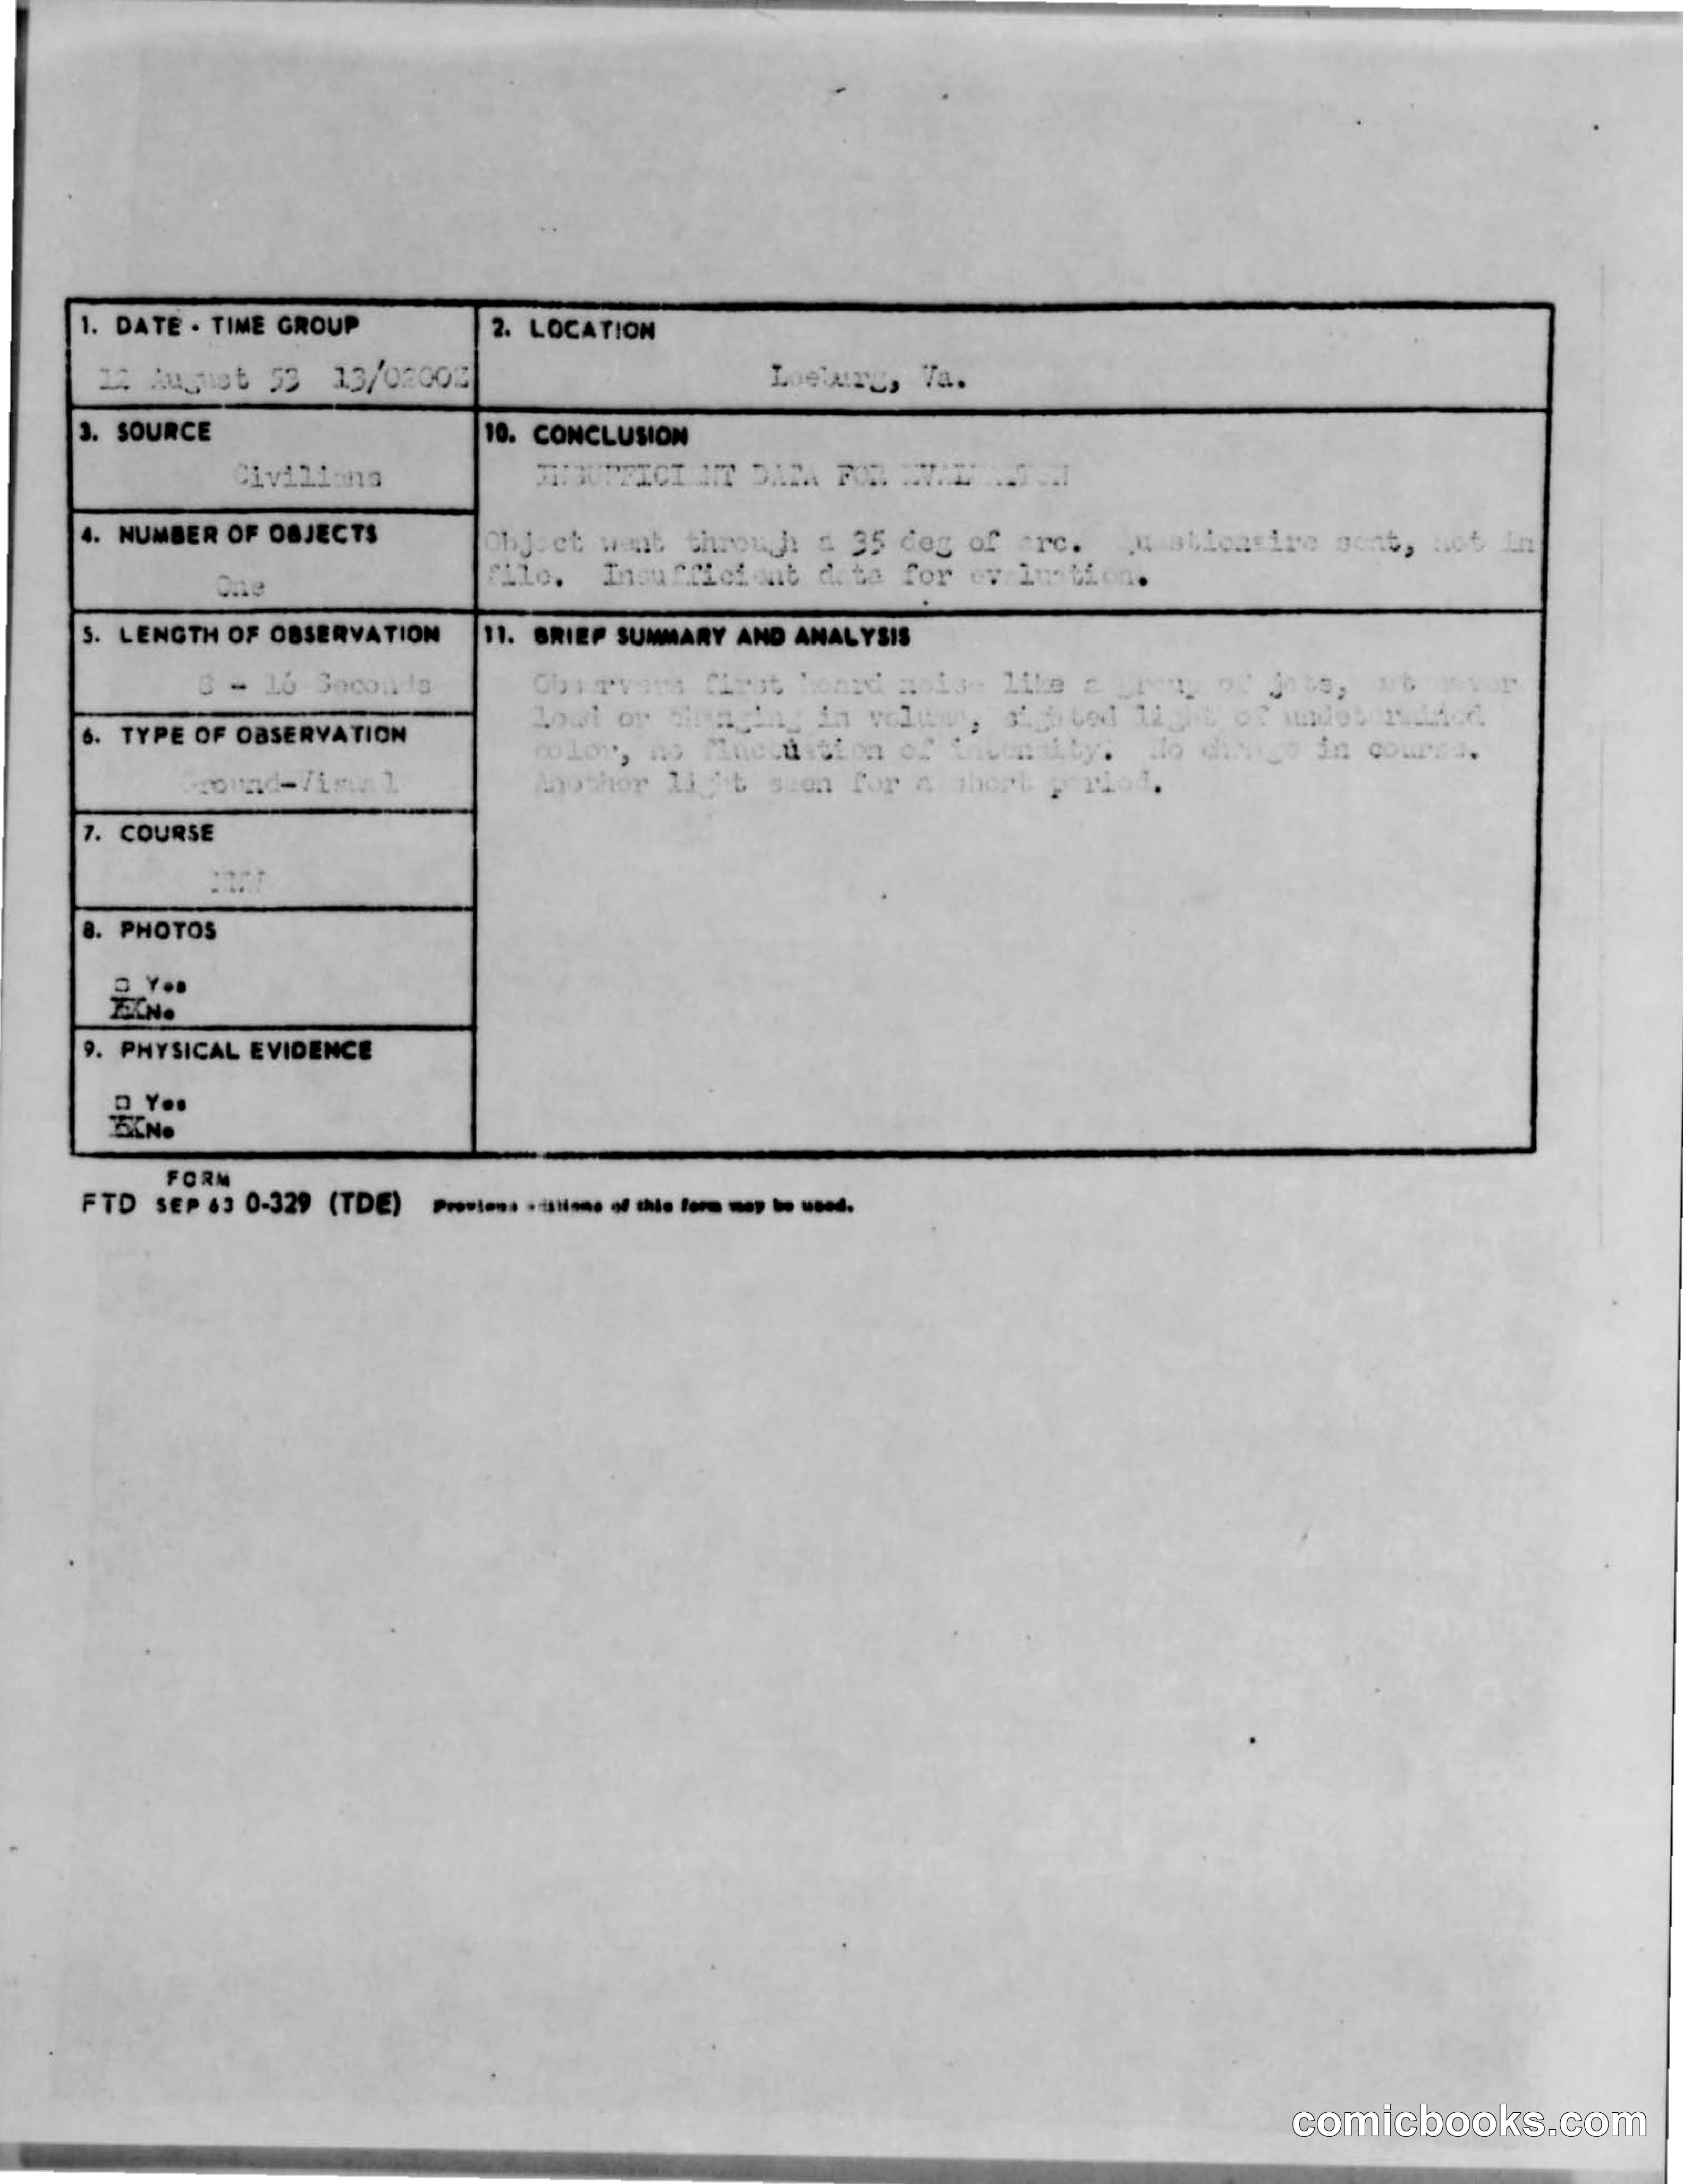 1. DATE - TIME GROUP
12 August 53 13/0200Z
2. LOCATION
Leeburg, Va.
3. SOURCE
Civilians
10. CONCLUSION
INSUFFICIENT DATA FOR EVALUATION
Object went through a 35 deg of arc. sent, not in
file. Insufficient data for evaluation.
4. NUMBER OF OBJECTS
One
5. LENGTH OF OBSERVATION
- 16 Seconds
11. BRIEF SUMMARY AND ANALYSIS
Observers first heard noise like a group of jets, but never
loud or changing in volume, sighted light of undetermined
color, no fluctuation of intensity. No change in course.
Another light seen for a short period.
6. TYPE OF OBSERVATION
Ground-Visual
7. COURSE
8. PHOTOS
□ Yes
No
9. PHYSICAL EVIDENCE
□ Yes
No
FORM
FTD SEP 63 0-329 (TDE) Previous editions of this form may be used.
comicbooks.com